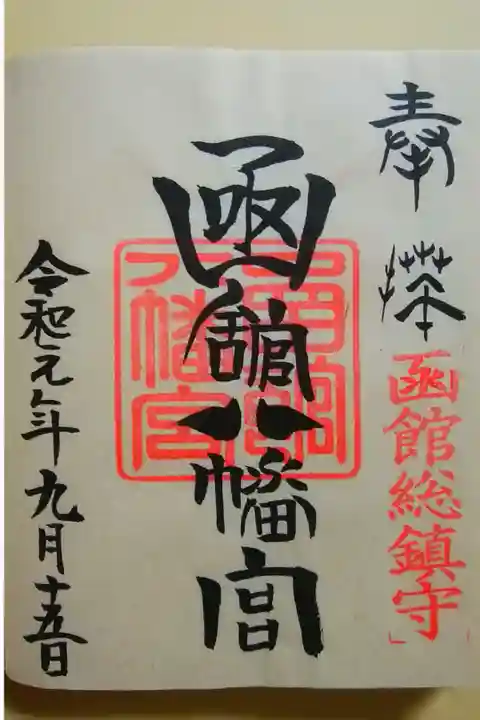 奉拝
函館総鎮守
函館八幡宮
函館八幡宮
令和元年九月十五日